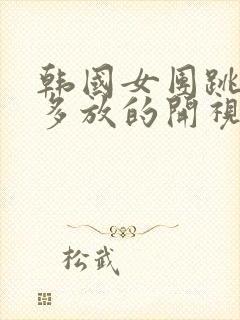 韩國女团跳
多放的開視
松武